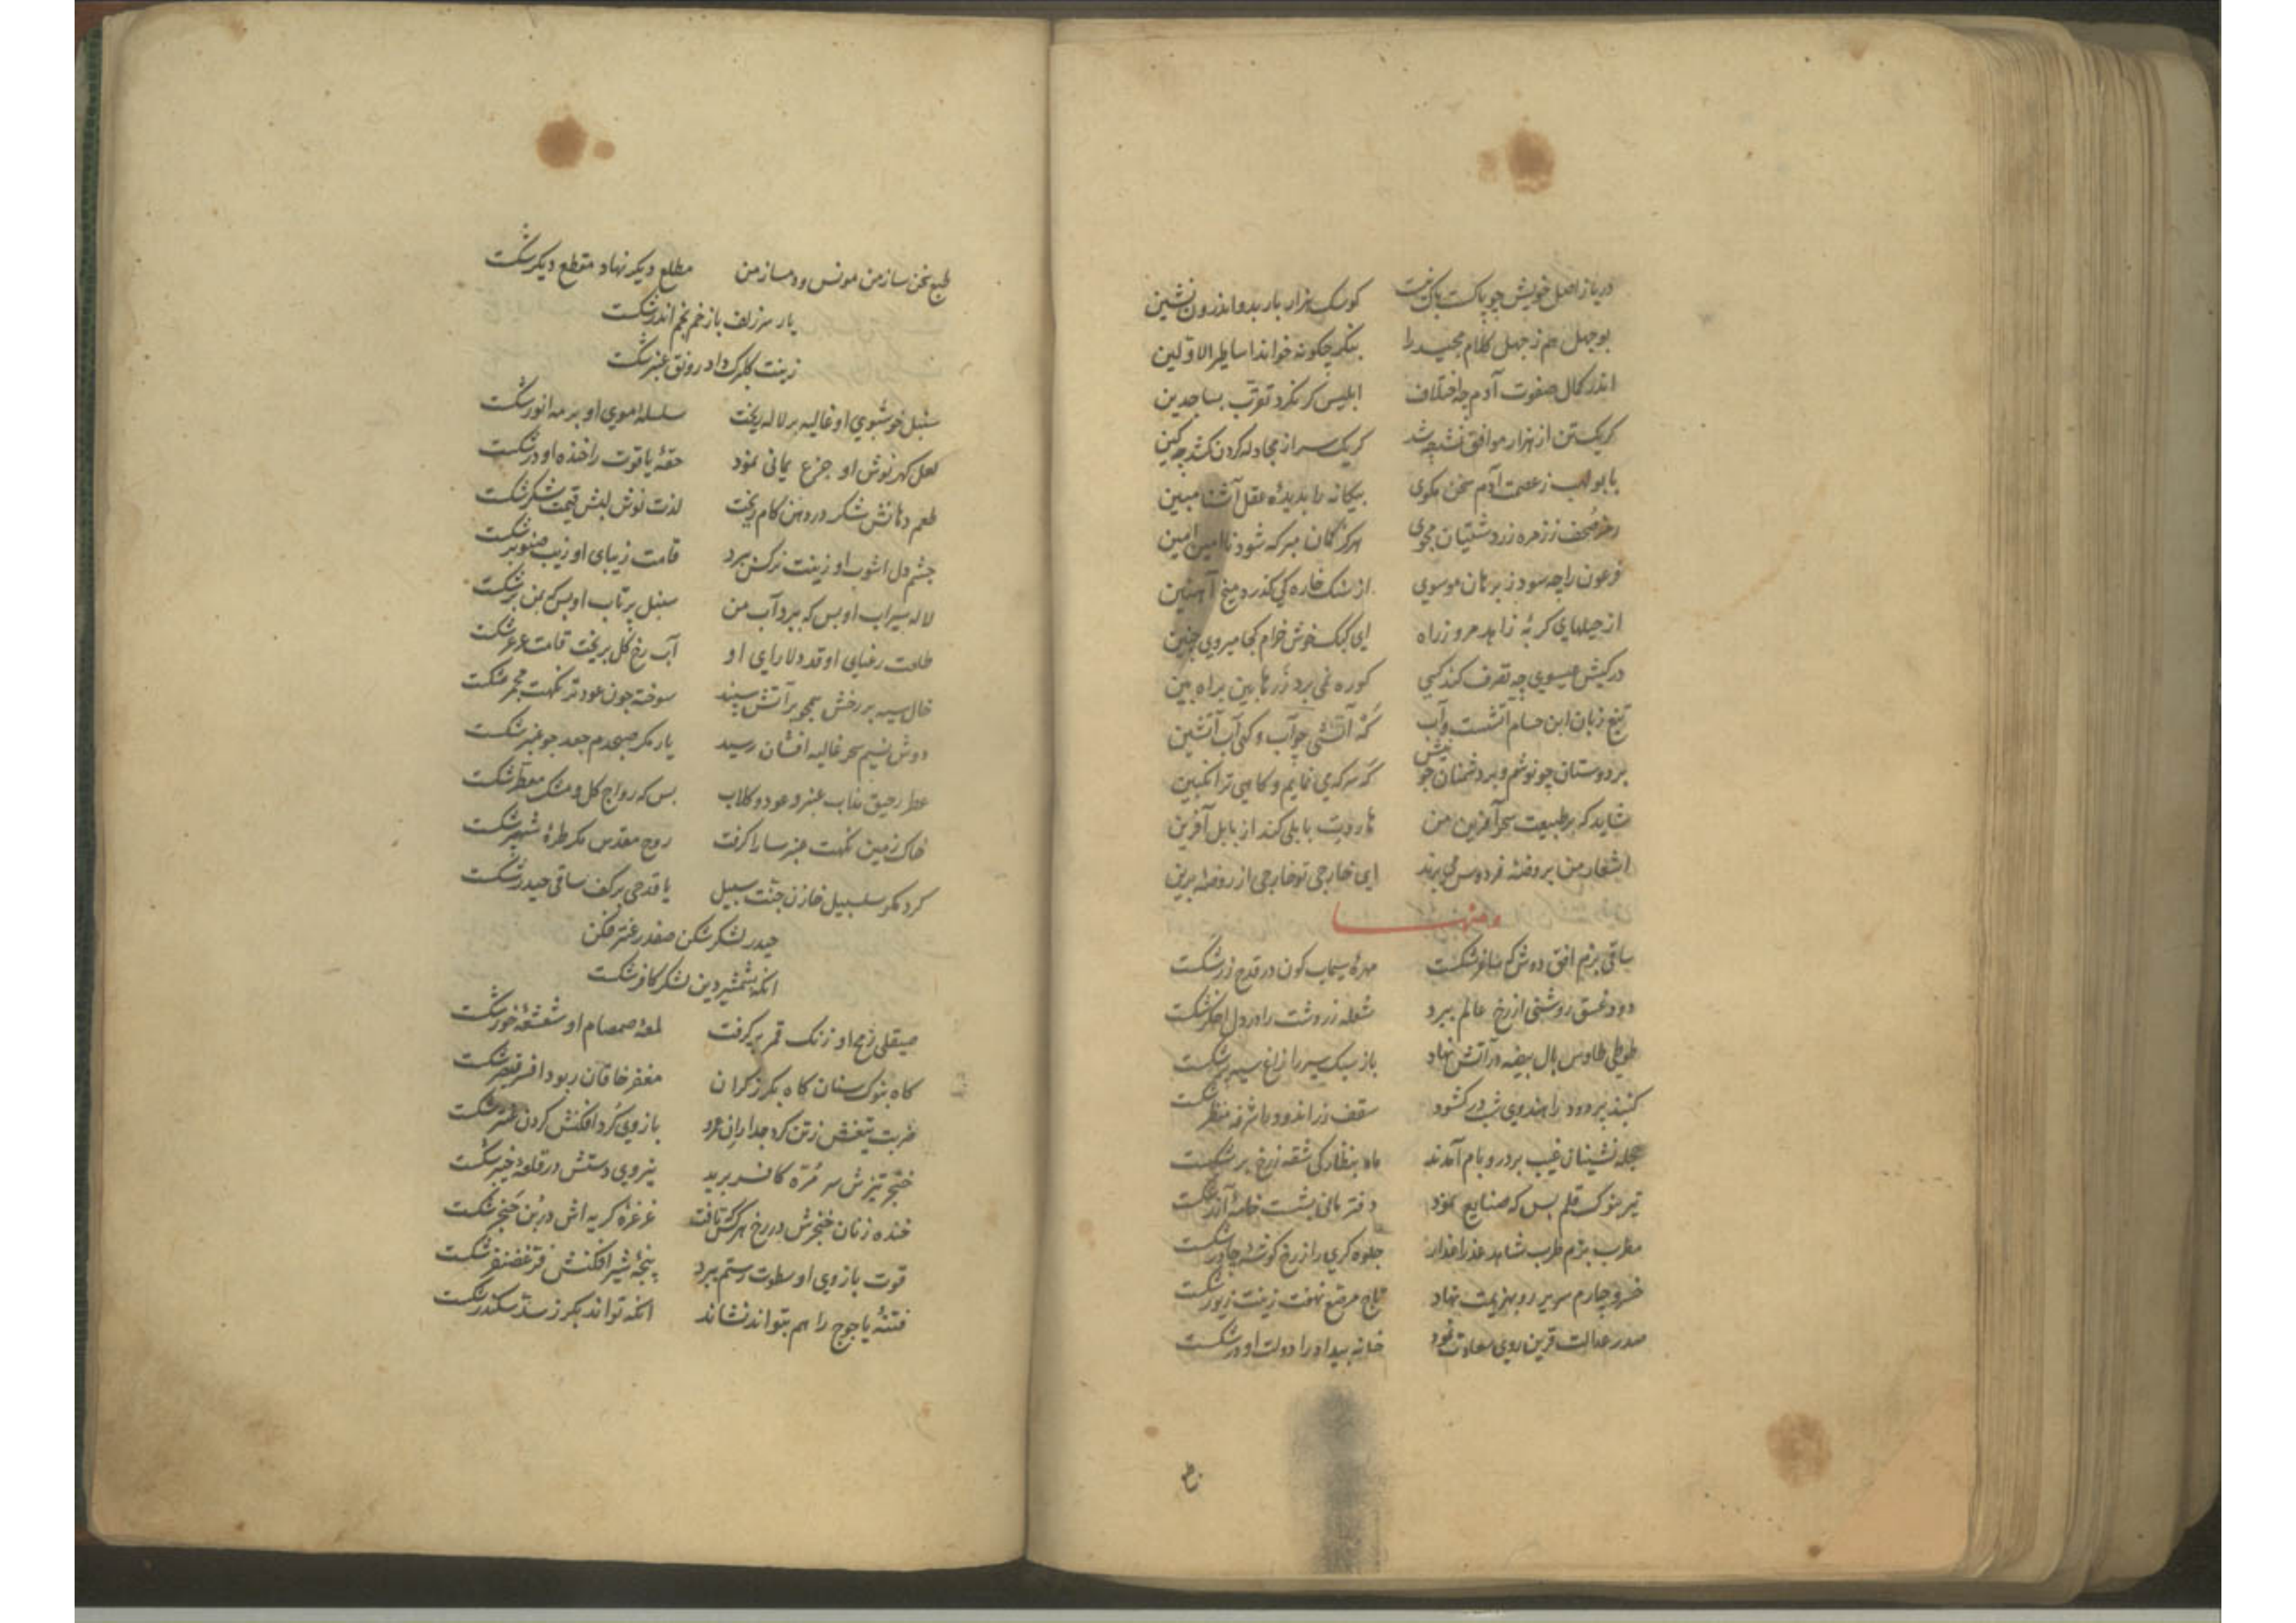 دریا ز اصل خویش چو پاکست باک نیست کو سک هزار بار بدو اندرون نشین
بوجهل هم ز جهل کلام مجید را بنکر چکونه خواند اساطیر الاولین
اندر کمال صفوت آدم چه اختلاف ابلیس کر نکرد تقرب بساجدین
کر یک تن از هزار موافق نشد چه شد کر یک سر از مجادله کردن کشد چه کین
با بولهب ز عصمت آدم سخن مکوی بیکانه را بدیده عقل آشنا مبین
رمز مصحف ز زمره زردشتیان مجوی هرکز کمان مبر که شود ناامین امین
فرعون را چه سود ز برهان موسوی از سنک خاره کی کذرد میخ آهنین
از حیلهای کربه زاهد مرو ز راه ای کبک خوش خرام کجا میروی چنین
در کیش عیسوی چه تصرف کند کسی کو ره نمی برد
تیغ زبان ابن حسام آتشست و آب که آتشی چو آب و کهی آب آتشین
بر دوستان چو نوشم و بر دشمنان چو نیش که سرکه می نمایم و کاهی ترانکبین
شاید که بر طبیعت سحرآفرین من هاروت بابلی کند از بابل آفرین
اشعار من بروضه فردوس می برند ای خارجی تو خارجی از روضه برین
ومنها
ساقی بزم افق دوش که ساغر شکست مهره سیماب کون در قدح زر شکست
دود غسق روشنی از رخ عالم ببرد شعله زردشت را در دل اخکر شکست
طوطی طاوس بال بیضه در آتش نهاد باز سبک سیر را زاغ سیه پر شکست
کنبد پر دود را هندوی شب در کشود سقف زراندود با شرفه منظر شکست
حجله نشینان غیب بر در و بام آمدند ماه بنظارکی شقه ز رخ بر شکست
تیر بنوک قلم بس که صنایع نمود دفتر مانی بشست خامه آزر شکست
مطرب بزم طرب شاهد عذرا عذار جلوه کری را ز رخ کوشه چادر شکست
خسرو چارم سریر رو بهزیمت نهاد تاج مرصع نهفت زینت زیور شکست
صدر عدالت قرین روی سعادت نمود خانه بیداد را دولت او در شکست
طبع سخن ساز من مونس و دمساز من مطلع دیکر نهاد مقطع دیکر شکست
یار سر زلف باز خم بخم اندر شکست
زینت کلبرک داد رونق عنبر شکست
سنبل خوشبوی او غالیه بر لاله ریخت سلسله موی او بر مه انور شکست
لعل کهر نوش او جزع یمانی نمود حقه یاقوت را خنده او در شکست
طعم دهانش شکر در دهن کام ریخت لذت نوش لبش قیمت شکر شکست
چشم دل اشوب او زینت نرکس ببرد قامت زیبای او زیب صنوبر شکست
لاله سیراب او بس که ببرد آب من سنبل پرتاب او بس که بمن بر شکست
طلعت رعنای او قد دلارای او آب رخ کل بریخت قامت عرعر شکست
خال سیه بر رخش همچو بر آتش سپند سوخته چون عود تر نکهت مجمر شکست
دوش نسیم سحر غالیه افشان رسید یار مکر صبحدم جعد چو عنبر شکست
عطر رحیق مذاب عنبر و عود و کلاب بس که رواج کل و مشک معطر شکست
خاک زمین نکهت عنبر سارا کرفت روح مقدس مکر طره شهپر شکست
کرد مکر سلسبیل خازن جنت سبیل یا قدحی بر کف ساقی حیدر شکست
حیدر لشکر شکن صفدر عنتر فکن
انکه بشمشیر دین لشکر کافر شکست
صیقلی رمح او زنک قمر بر کرفت لمعه صمصام او شعشعه خور شکست
کاه بنوک سنان کاه بکرز کران مغفر خاقان ربود افسر قیصر شکست
ضربت تیغش ز تن کرد جدا ران عمرو بازوی کرد افکنش کردن عنتر شکست
خنجر تیزش سر مره کافر برید نیروی دستش در قلعه خیبر شکست
خنده زنان خنجرش در رخ هر کس که تافت غرغره کریه اش در بن حنجر شکست
قوت بازوی او سطوت رستم ببرد پنجه شیر افکنش فر غضنفر شکست
فتنه یاجوج را هم بتواند نشاند انکه تواند بکرز سد سکندر شکست